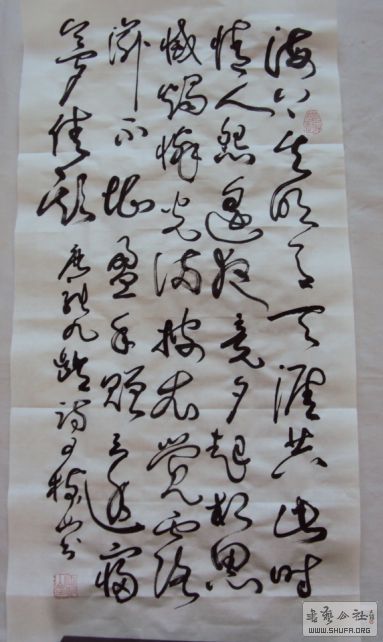 海上生明月天涯共此时
情人怨遥夜竟夕起相思
灭烛怜光满披衣觉露
滋不堪盈手赠还寝
梦佳期 唐张九龄诗
书艺公社
WWW.SHUFA.ORG